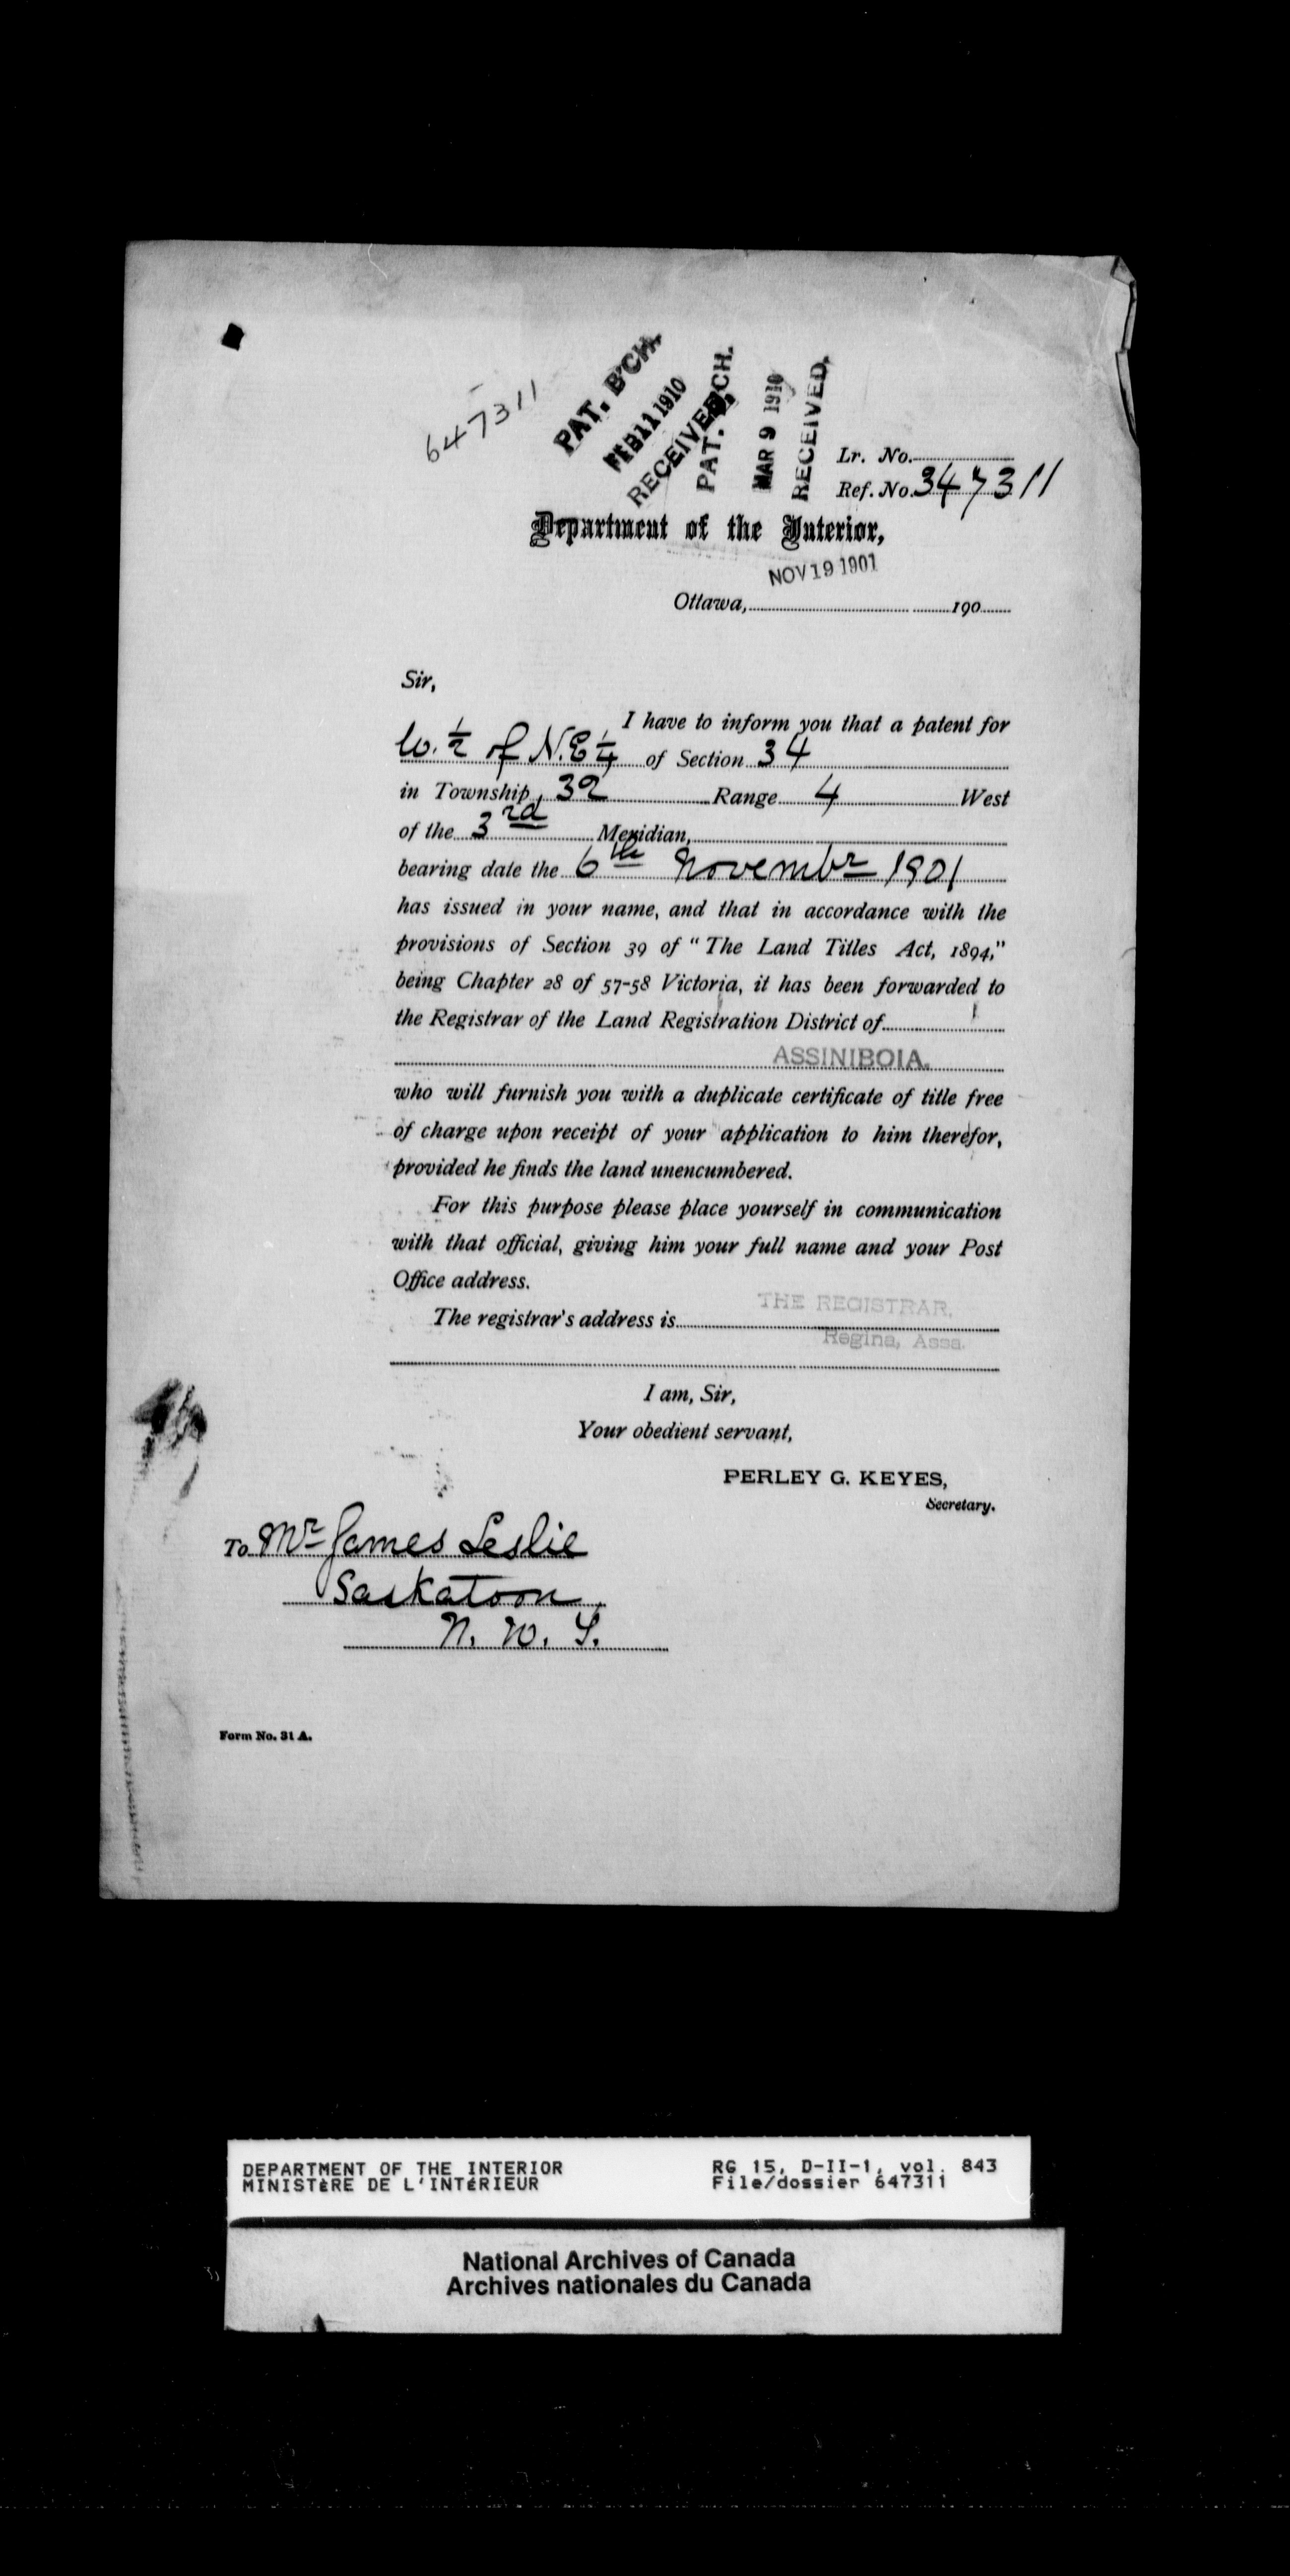 647311
PAT. B'CH.
FEB 11 1910
RECEIVED.
PAT. B'CH.
MAR 9 1910
RECEIVED.
Lr. No.
Ref. No. 347311
Department of the Interior,
NOV 19 1901
Ottawa, 190
Sir,
I have to inform you that a patent for
W. 1/2 of N.E 1/4 of Section 34
in Township 32 Range 4 West
of the 3rd Meridian,
bearing date the 6th Novembr 1901
has issued in your name, and that in accordance with the
provisions of Section 39 of "The Land Titles Act, 1894,"
being Chapter 28 of 57-58 Victoria, it has been forwarded to
the Registrar of the Land Registration District of
ASSINIBOIA.
who will furnish you with a duplicate certificate of title free
of charge upon receipt of your application to him therefor,
provided he finds the land unencumbered.
For this purpose please place yourself in communication
with that official, giving him your full name and your Post
Office address.
THE REGISTRAR,
The registrar's address is
Regina, Assa.
I am, Sir,
Your obedient servant,
PERLEY G. KEYES,
Secretary.
To Mr James Leslie
Saskatoon,
N. W. T.
Form No. 31 A.
DEPARTMENT OF THE INTERIOR RG 15, D-II-1, vol. 843
MINISTÈRE DE L'INTÉRIEUR File/dossier 647311
National Archives of Canada
Archives nationales du Canada